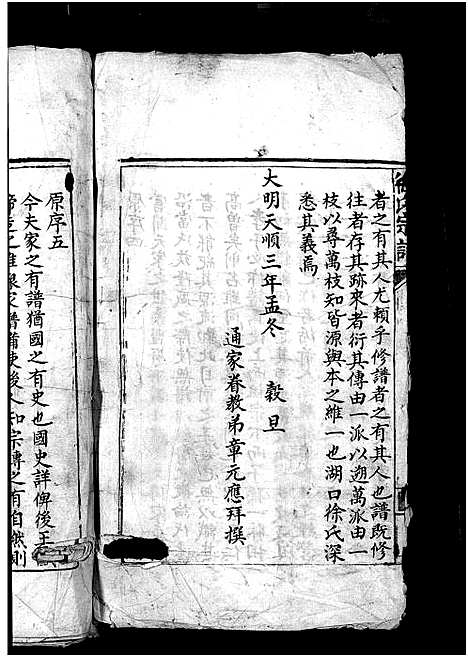 徐氏宗譜
者之有其人尤賴乎修譜者之有其人也譜既修
往者存其跡來者衍其傳由一派以遡萬派由一
枝以尋萬枝知皆源與本之維一也湖口徐氏深
悉其義焉
大明天順三年孟冬 穀旦
通家眷教弟章元應拜撰
原序五
今夫家之有譜猶國之有史也國史詳俾後王
譜俾後人知宗傳之有自然則